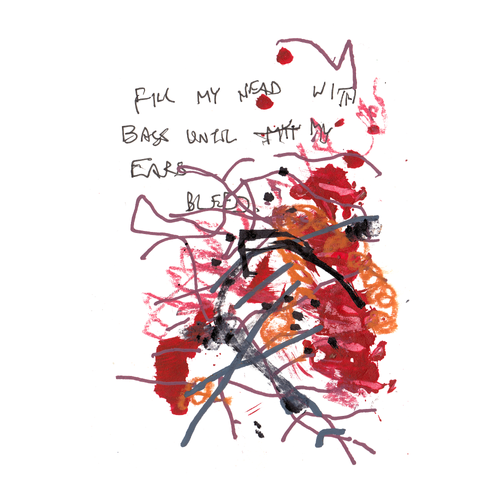 FILL MY HEAD WITH
BASS UNTIL MY
EARS
BLEED.